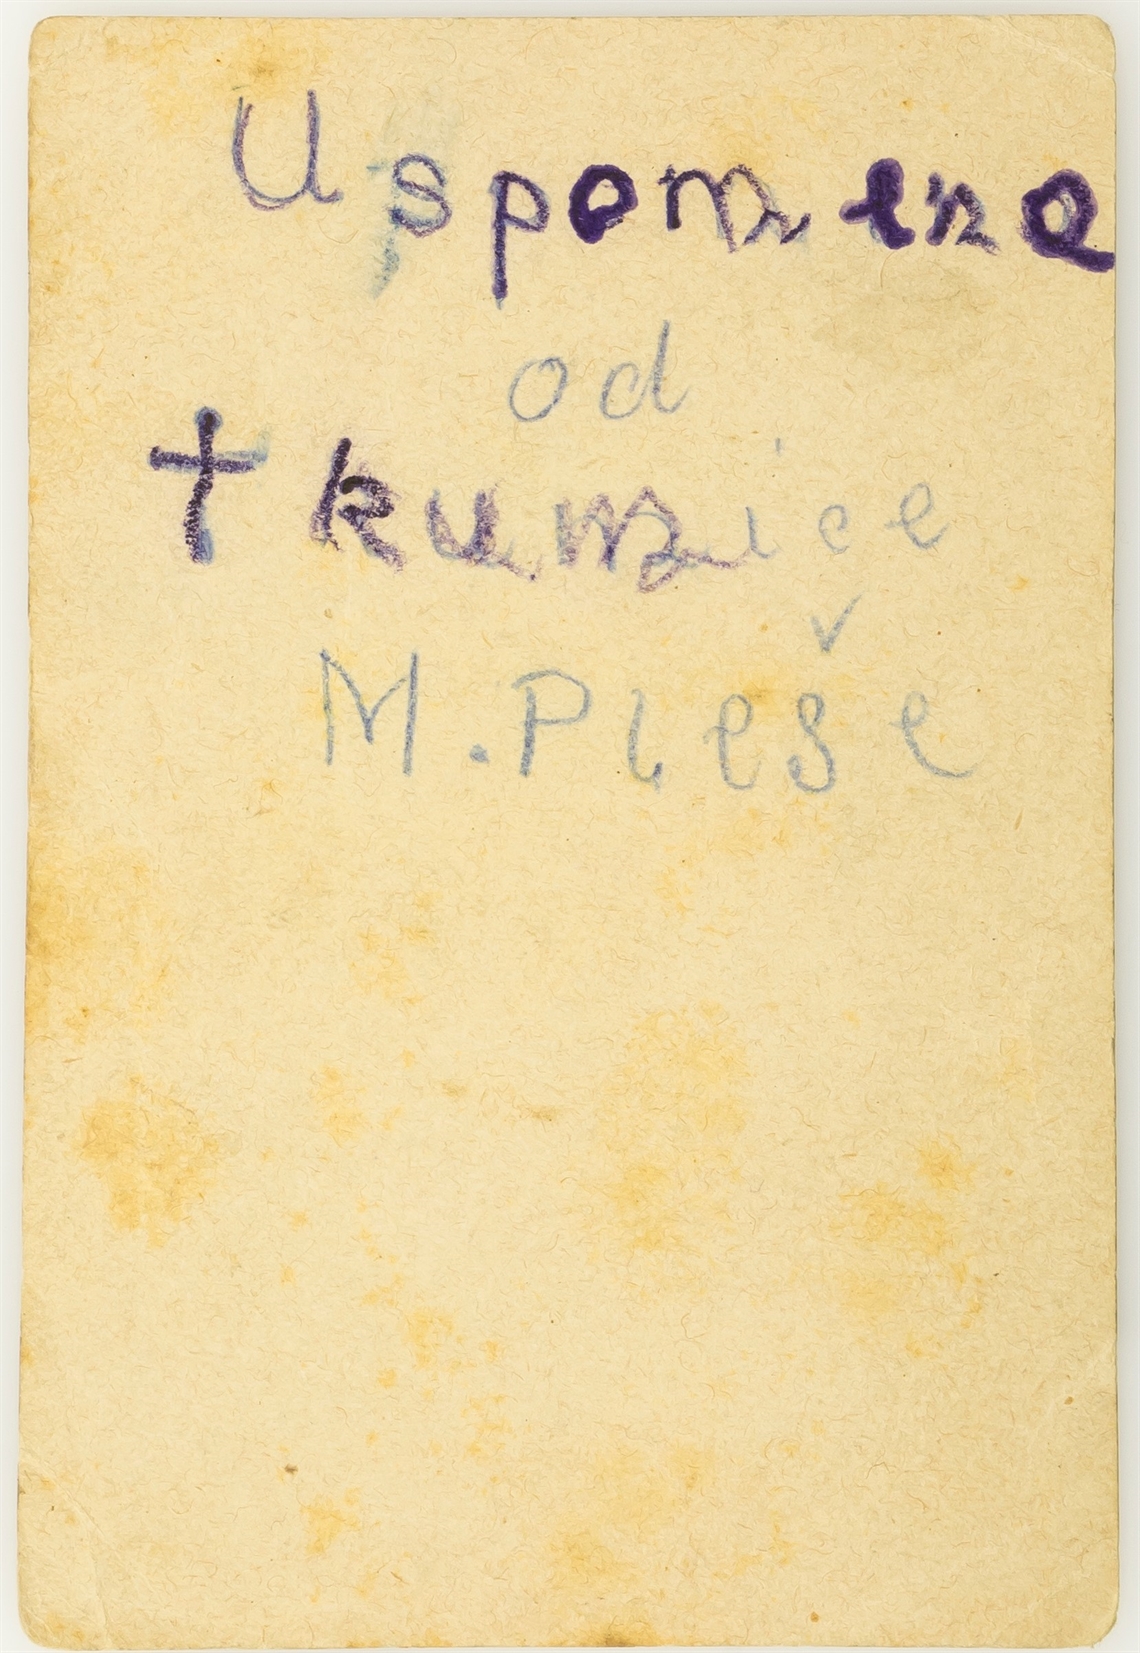 Uspomena
od
† kumice
M. Pleše